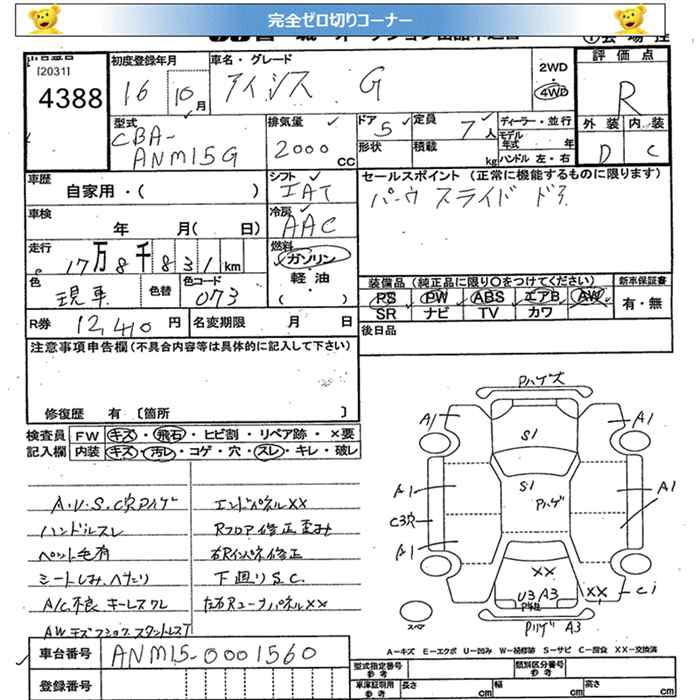 完全ゼロ切りコーナー
[2031]
4388
初度登録年月
16 10月
車名・グレード
アイシス G
2WD
4WD
評価点
R
外装 内装
D C
型式
CBA-
ANM15G
排気量
2000 CC
ドア 5
形状
定員 7人
積載 kg
ディーラー・並行
モデル年式 年
ハンドル 左・右
車歴
自家用・( )
シフト
IAT
セールスポイント(正常に機能するものに限ります)
パーウ スライド ドア
車検
年 月( 日)
冷房
AAC
走行
17万8千831km
燃料
ガソリン
軽・油
( )
色
現車
色替
色コード
073
装備品(純正品に限り○をつけてください)
PS PW ABS エアB AW
SR ナビ TV カワ
新車保証書
有・無
R券 12,410 円
名変期限 月 日
後日品
注意事項申告欄(不具合内容等は具体的に記入して下さい)
修復歴 有 〔箇所 〕
検査員
記入欄
FW キズ・飛石・ヒビ割・リペア跡・×要
内装 キズ・汚レ・コゲ・穴・スレ・キレ・破レ
A.U.S.C穴Pハゲ
ハンドルスレ
ペット毛有
シートしみ、ヘタり
A/C不良 キーレスワレ
エンドパネルXX
Rフロア修正歪み
右Rインパネ修正
下廻りS.C.
左右RコーナパネルXX
Pハゲ大
A1
A1
S1
S1
Pハゲ
A1
A1
C3穴
A1
XX
U3 A3
XX
C1
P A3
スペア
A-キズ E-エクボ U-凹み W-補修跡 S-サビ C-腐食 XX-交換済
車台番号 ANM15-0001560
登録番号
型式指定番号
参考
類別区分番号
参考
車庫証明用
参考
長さ cm
幅 cm
高さ cm